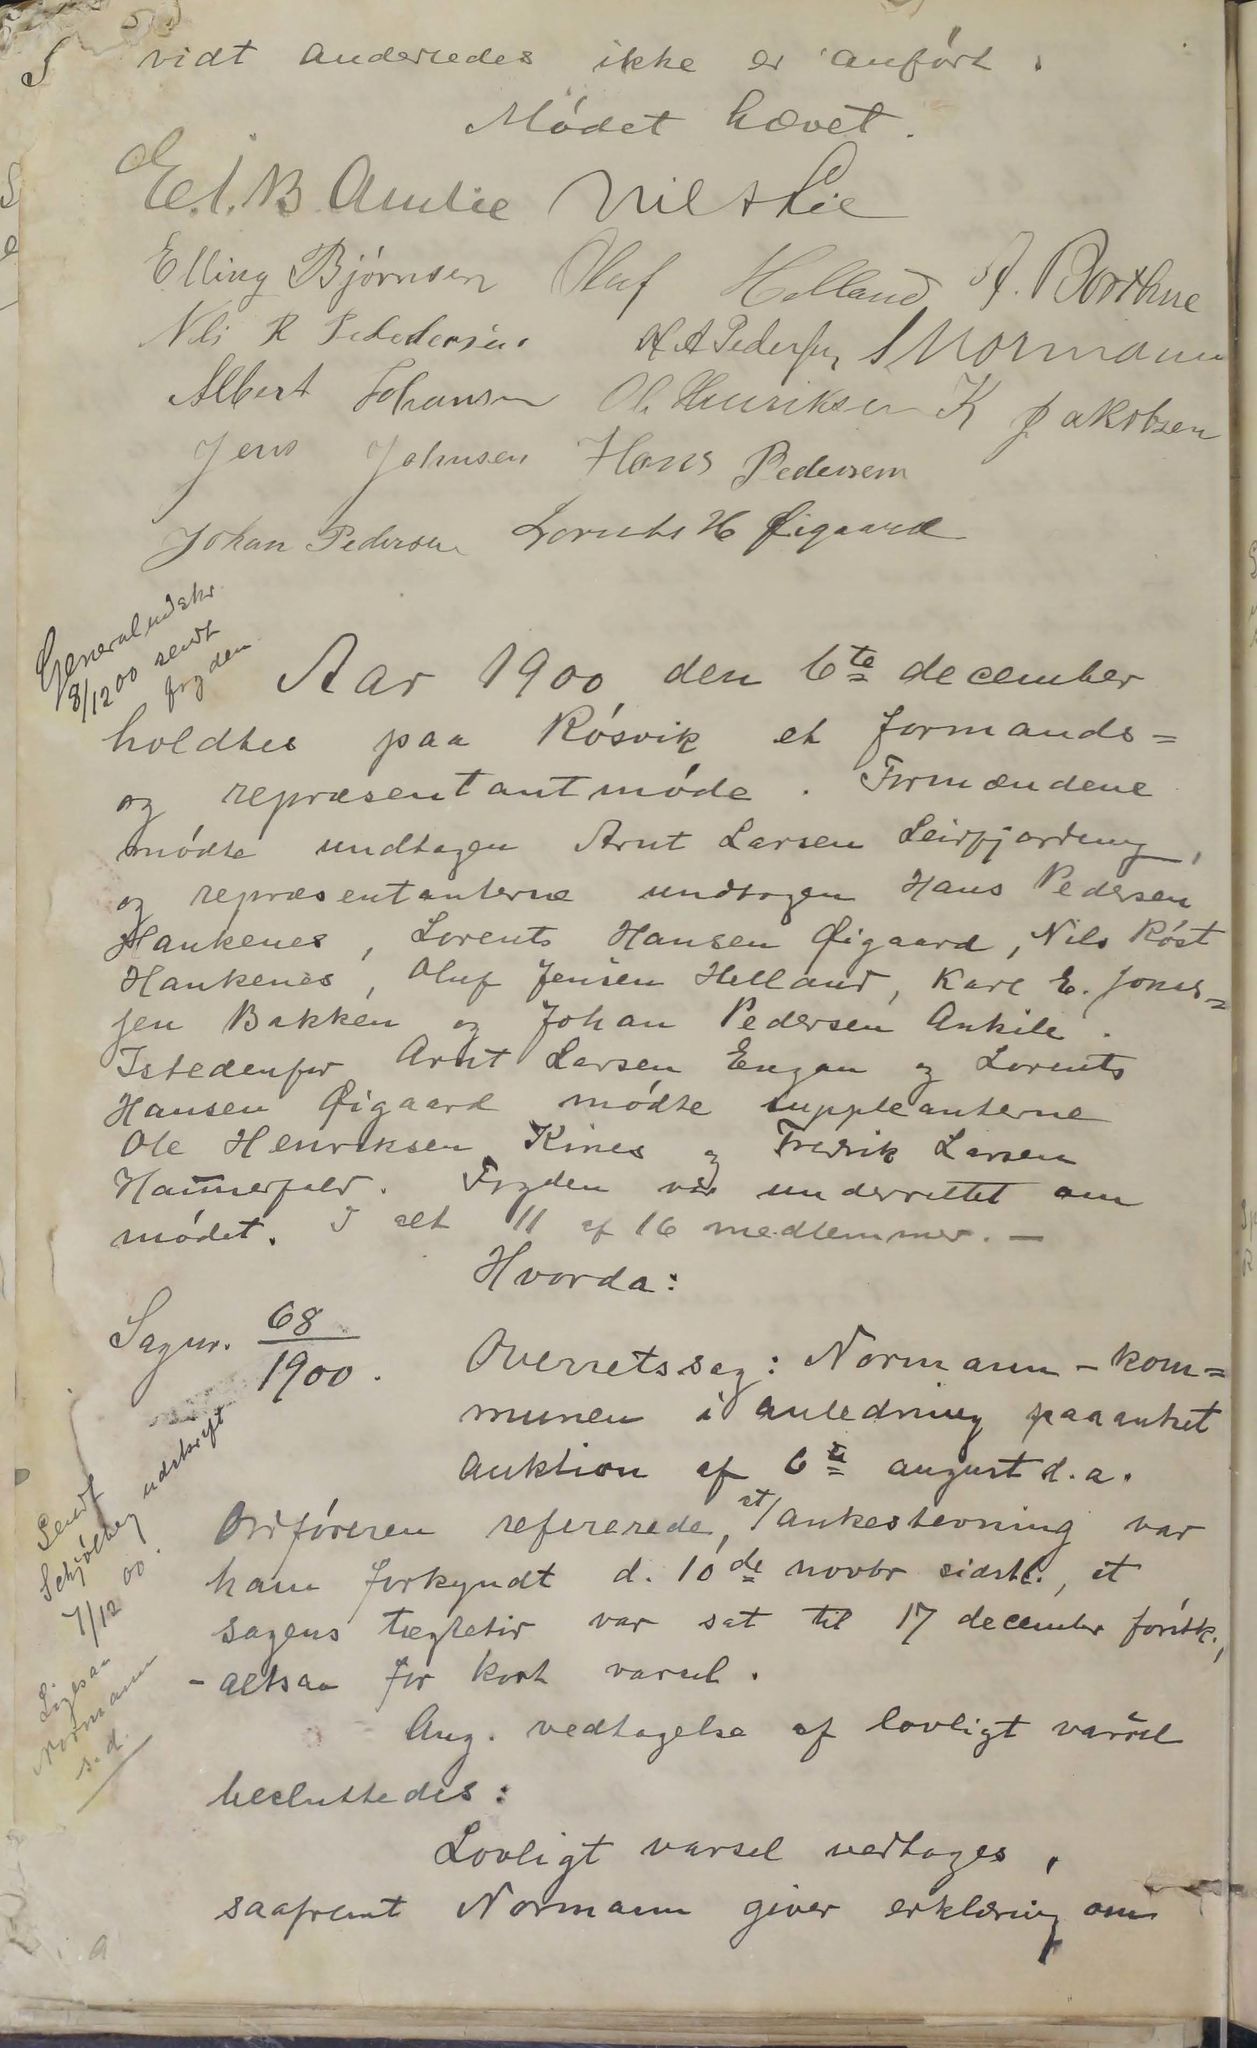 vidt anderledes ikke er anført.
Mødet hævet.
E.J.B. Nils Lie
Elling Bjørnsen Oluf Helland A. Borthne
Nils R Pedersen H A Pedersen S Normann
Albert Johansen Ol. Henriksen K Jakobsen
Jens Johnsen Hans Pedersen
Johan Pedersen Lorents H Øigaard
Generaludskr.
8/12 00 sendt
fogden
Aar 1900 den 6te december
holdtes paa Røsvik et formands=
og repræsentantmøde. Formændene
mødte undtagen Arnt Larsen Leirfjorden,
og repræsentanterne undtagen Hans Pedersen
Hankenes, Lorents Hansen Øigaard, Nils Røst
Hankenes, Oluf Jensen Helland, Karl E. Jonas=
sen Bakken og Johan Pedersen Ankile.
Istedenfor Arnt Larsen Engan og Lorents
Hansen Øigaard mødte suppleanterne
Ole Henriksen Kines og Fredrik Larsen
Ham̄erfald. Fogden var underrettet om
mødet. I alt 11 af 16 medlemmer. —
Hvorda:
Sagnr. 68/1900.
Overretssag: Normann - kom=
munen i anledning paaanket
auktion af 6te august d.a.
Sendt
Schjølberg udskrift
7/12 00.
Ligesaa
Normann
s.d.
Ordføreren refererede, at ankestevning var
ham forkyndt d. 10de novbr sidstl., at
sagens tægtetir var sat til 17 december førstk.,
- altsaa for kort varsel.
Ang. vedtagelse af lovligt varsel
besluttedes:
Lovligt varsel vedtages,
saafremt Normann giver erklæring om